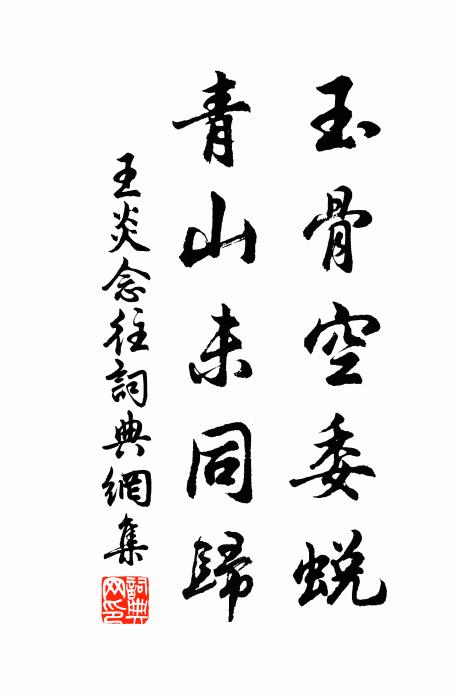 玉骨空委蛻
青山未同歸
王炎念往詞典網集
詞典網印